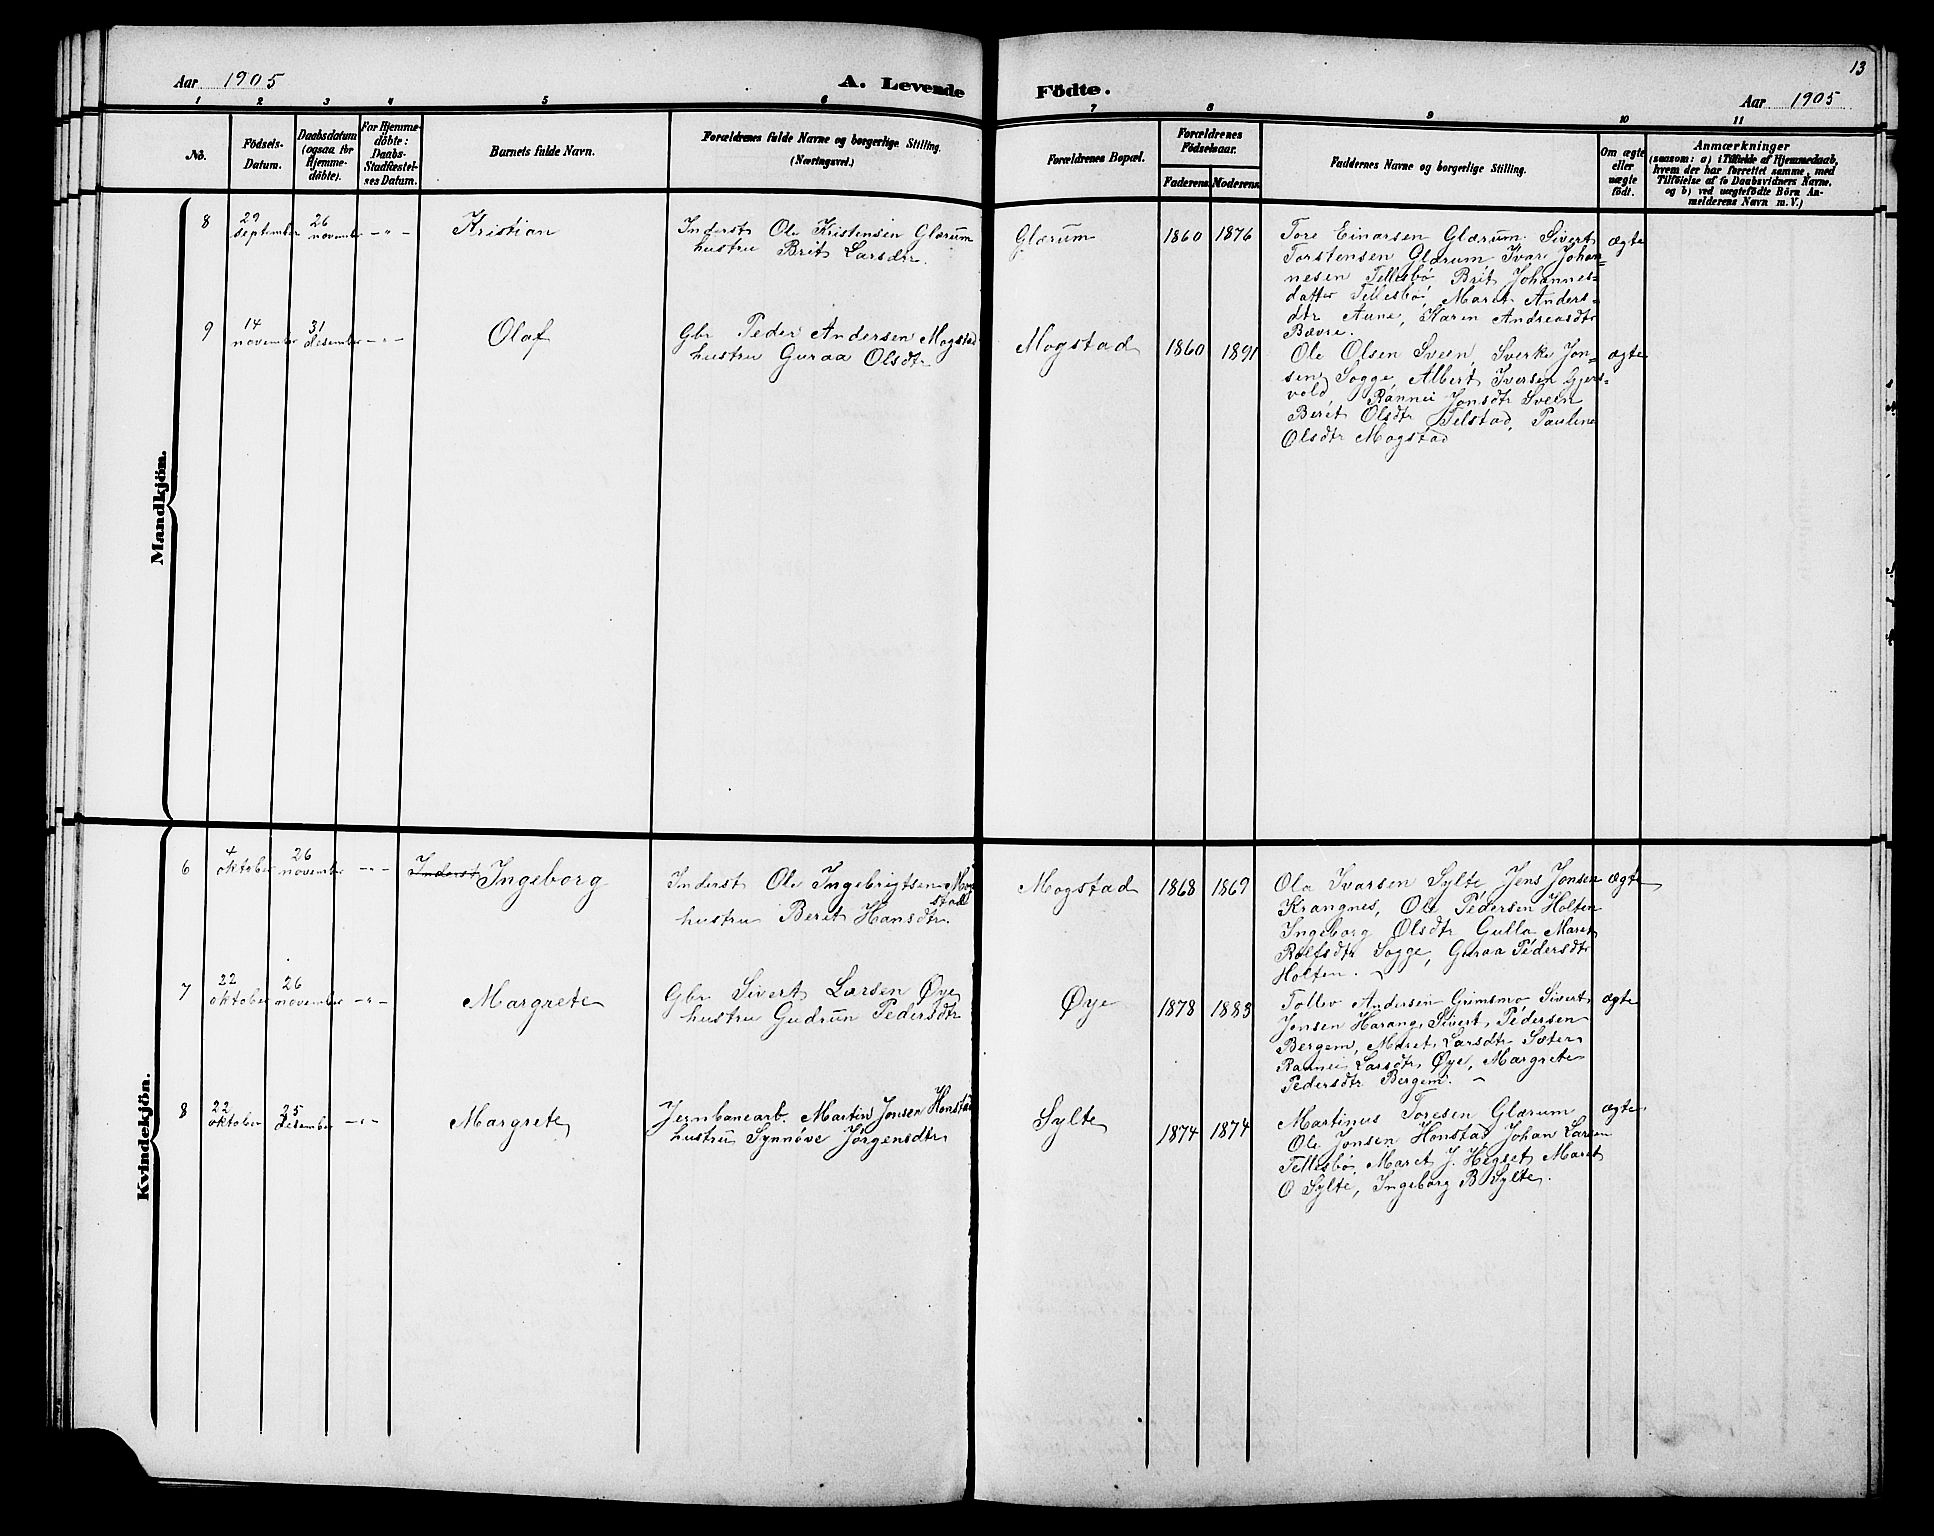 13
Aar 1905 A. Levende Födte. Aar 1905
1 2 3 4 5 6 7 8 9 10 11
No.
Födsels-
Datum.
Daabsdatum
(ogsaa for
Hjemme-
döbte).
For Hjemme-
döbte:
Daabs-
Stadfæstel-
ses Datum.
Barnets fulde Navn.
Forældrenes fulde Navne og borgerlige Stilling.
(Næringsvei.)
Forældrenes Bopæl.
Forældrenes
Födselsaar.
Faderens. Moderens.
Faddernes Navne og borgerlige Stilling.
Om ægte
eller
uægte
födt.
Anmærkninger
(saasom: a) i Tilfælde af Hjemmedaab,
hvem der har forrettet samme, med
Tilföielse af to Daabsvidners Navne,
og b) ved uægtefödte Börn An-
melderens Navn m. V.)
Mandkjön.
8
29
september
26
november
- " -
Kristian
Inderst Ole Kristensen Glærum
hustru Brit Larsdtr.
Glærum
1860 1876
Tore Einarsen Glærum. Sivert
Torstensen Glærum Ivar Johan-
nesen Tellesbø, Brit Johannes-
datter Tellesbø, Maret Anders-
dtr Aune, Karen Andreasdtr
Bævre.
ægte
9
14
november
31
desember
- " -
Olaf
Gbr Peder Andersen Mogstad
hustru Guraa Olsdtr
Mogstad
1860 1891
Ole Olsen Sveen, Sverke Jon-
sen Sogge, Albert Iversen Gjers-
vold, Rannei Jonsdtr Sveen
Berit Olsdtr Telstad, Pauline
Olsdtr Mogstad
ægte
Kvindekjön.
6
4
oktober
26
november
- " -
Inderst Ingeborg
Inderst Ole Ingebrigtsen Mog
stad
hustru Beret Hansdtr.
Mogstad
1868 1869
Ola Ivarsen Sylte, Jens Jonsen
Krangnes, Ole Pedersen Holten
Ingeborg Olsdtr Gulla Maret
Rolfsdtr Sogge, Guraa Pedersdtr
Holten.
ægte
7
22
oktober
26
november
- " -
Margrete
Gbr Sivert Larsen Øye
hustru Gudrun Pedersdtr
Øye
1878 1883
Tollev Andersen Grimsmo Sivert
Jonsen Harang, Sivert Pedersen
Bergem, Maret Larsdtr Sæter
Rannei Larsdtr Øye, Margrete
Pedersdtr Bergem.
ægte
8
22
oktober
25
desember
- " -
Margrete
Jernbanearb. Martin Jonsen Honstad
hustru Synnøve Jørgensdtr
Sylte
1874 1874
Martinus Toresen Glærum
Ole Jonsen Honstad Johan Larsen
Tellesbø, Maret J. Hegset Maret
O Sylte, Ingeborg B Sylte.
ægte